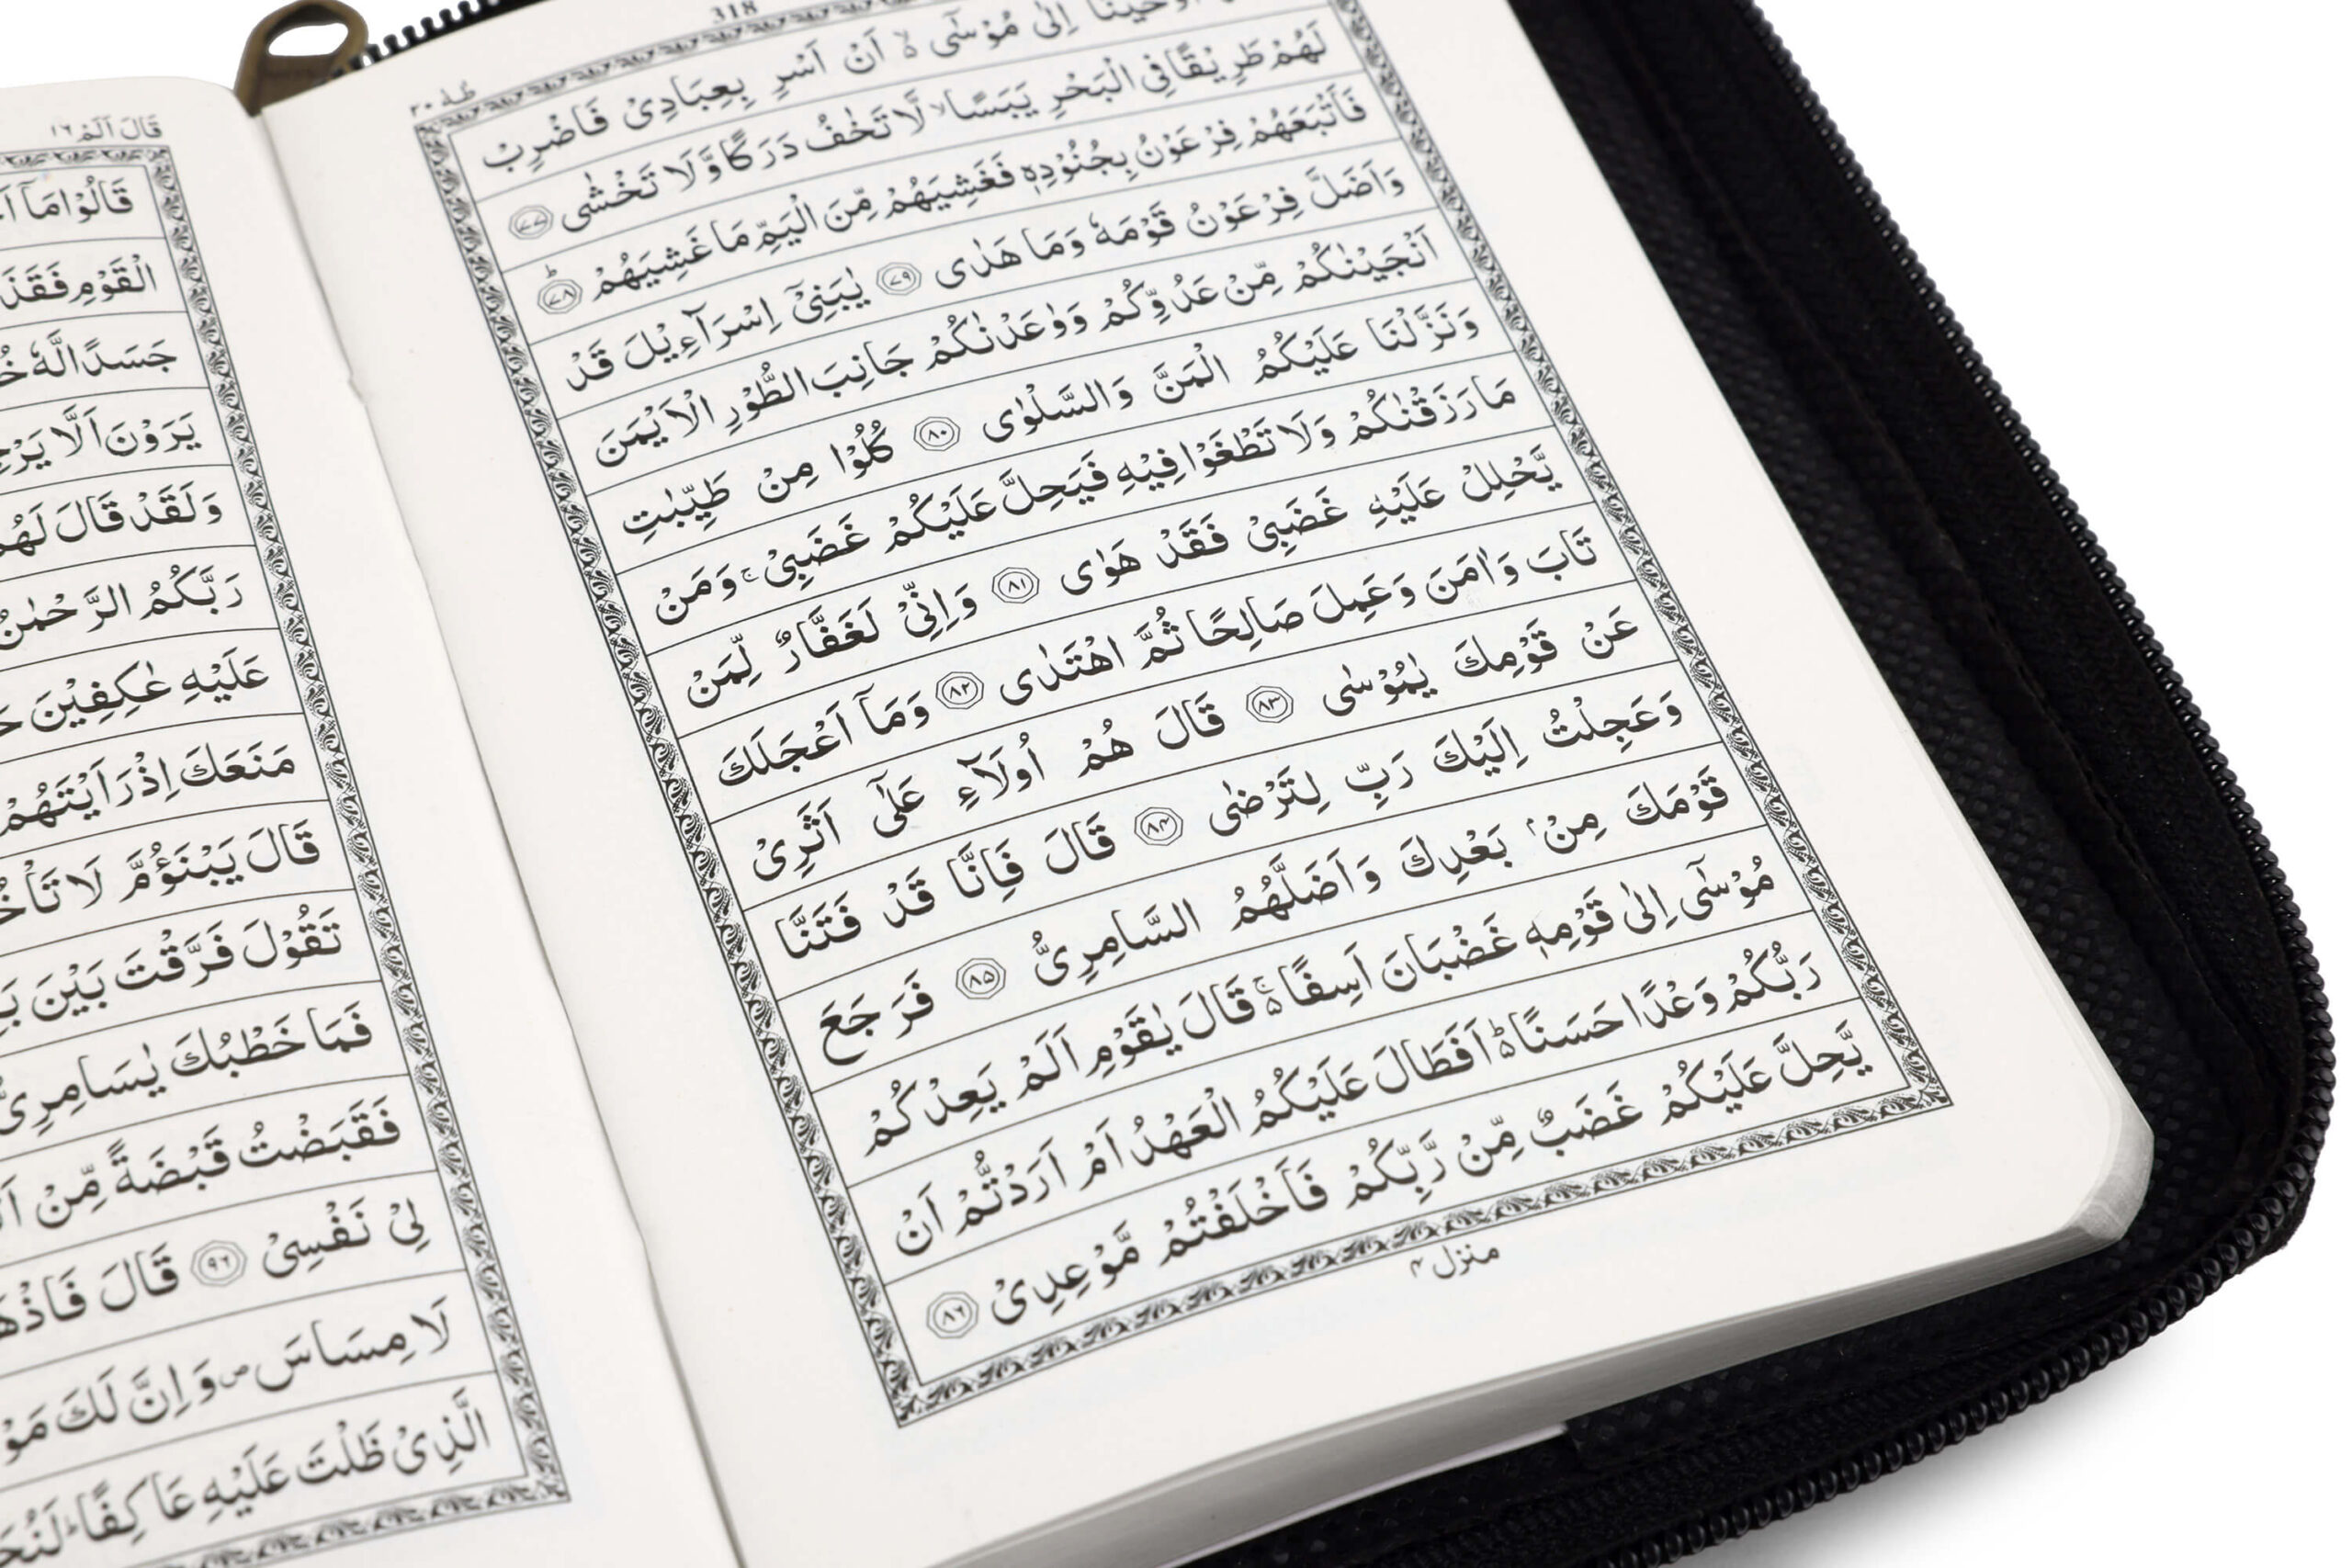 318
طٰهٰ ٢٠
اَوْحَيْنَاۤ اِلٰى مُوْسٰۤى ەۙ اَنْ اَسْرِ بِعِبَادِىْ فَاضْرِبْ
لَهُمْ طَرِيْقًا فِى الْبَحْرِ يَبَسًا ۙ لَّا تَخٰفُ دَرَكًا وَّلَا تَخْشٰى ٧٧
فَاَتْبَعَهُمْ فِرْعَوْنُ بِجُنُوْدِهٖ فَغَشِيَهُمْ مِّنَ الْيَمِّ مَا غَشِيَهُمْ ؕ ٧٨
وَاَضَلَّ فِرْعَوْنُ قَوْمَهٗ وَمَا هَدٰى ٧٩ يٰبَنِىْۤ اِسْرَآءِيْلَ قَدْ
اَنْجَيْنٰكُمْ مِّنْ عَدُوِّكُمْ وَوٰعَدْنٰكُمْ جَانِبَ الطُّوْرِ الْاَيْمَنَ
وَنَزَّلْنَا عَلَيْكُمُ الْمَنَّ وَالسَّلْوٰى ٨٠ كُلُوْا مِنْ طَيِّبٰتِ
مَا رَزَقْنٰكُمْ وَلَا تَطْغَوْا فِيْهِ فَيَحِلَّ عَلَيْكُمْ غَضَبِىْ ۚ وَمَنْ
يَّحْلِلْ عَلَيْهِ غَضَبِىْ فَقَدْ هَوٰى ٨١ وَاِنِّىْ لَغَفَّارٌ لِّمَنْ
تَابَ وَاٰمَنَ وَعَمِلَ صَالِحًا ثُمَّ اهْتَدٰى ٨٢ وَمَاۤ اَعْجَلَكَ
عَنْ قَوْمِكَ يٰمُوْسٰى ٨٣ قَالَ هُمْ اُولَآءِ عَلٰٓى اَثَرِىْ
وَعَجِلْتُ اِلَيْكَ رَبِّ لِتَرْضٰى ٨٤ قَالَ فَاِنَّا قَدْ فَتَنَّا
قَوْمَكَ مِنْۢ بَعْدِكَ وَاَضَلَّهُمُ السَّامِرِىُّ ٨٥ فَرَجَعَ
مُوْسٰۤى اِلٰى قَوْمِهٖ غَضْبَانَ اَسِفًا ۚ۬ قَالَ يٰقَوْمِ اَلَمْ يَعِدْكُمْ
رَبُّكُمْ وَعْدًا حَسَنًا ؕ۬ اَفَطَالَ عَلَيْكُمُ الْعَهْدُ اَمْ اَرَدْتُّمْ اَنْ
يَّحِلَّ عَلَيْكُمْ غَضَبٌ مِّنْ رَّبِّكُمْ فَاَخْلَفْتُمْ مَّوْعِدِىْ ٨٦
منزل ٤
قَالَ اَلَمْ ١٦
قَالُوْا مَاۤ
الْقَوْمِ
جَسَدًا لَّهٗ
يَرَوْنَ اَلَّا
وَلَقَدْ قَالَ لَهُمْ
رَبَّكُمُ الرَّحْمٰنُ
عَلَيْهِ عٰكِفِيْنَ
مَنَعَكَ اِذْ رَاَيْتَهُمْ
قَالَ يَبْنَؤُمَّ لَا
تَقُوْلَ فَرَّقْتَ بَيْنَ
فَمَا خَطْبُكَ يٰسَامِرِىُّ
فَقَبَضْتُ قَبْضَةً مِّنْ
لِىْ نَفْسِىْ ٩٦ قَالَ
لَا مِسَاسَ ۪ وَاِنَّ لَكَ
الَّذِىْ ظَلْتَ عَلَيْهِ عَاكِفًا ؕ